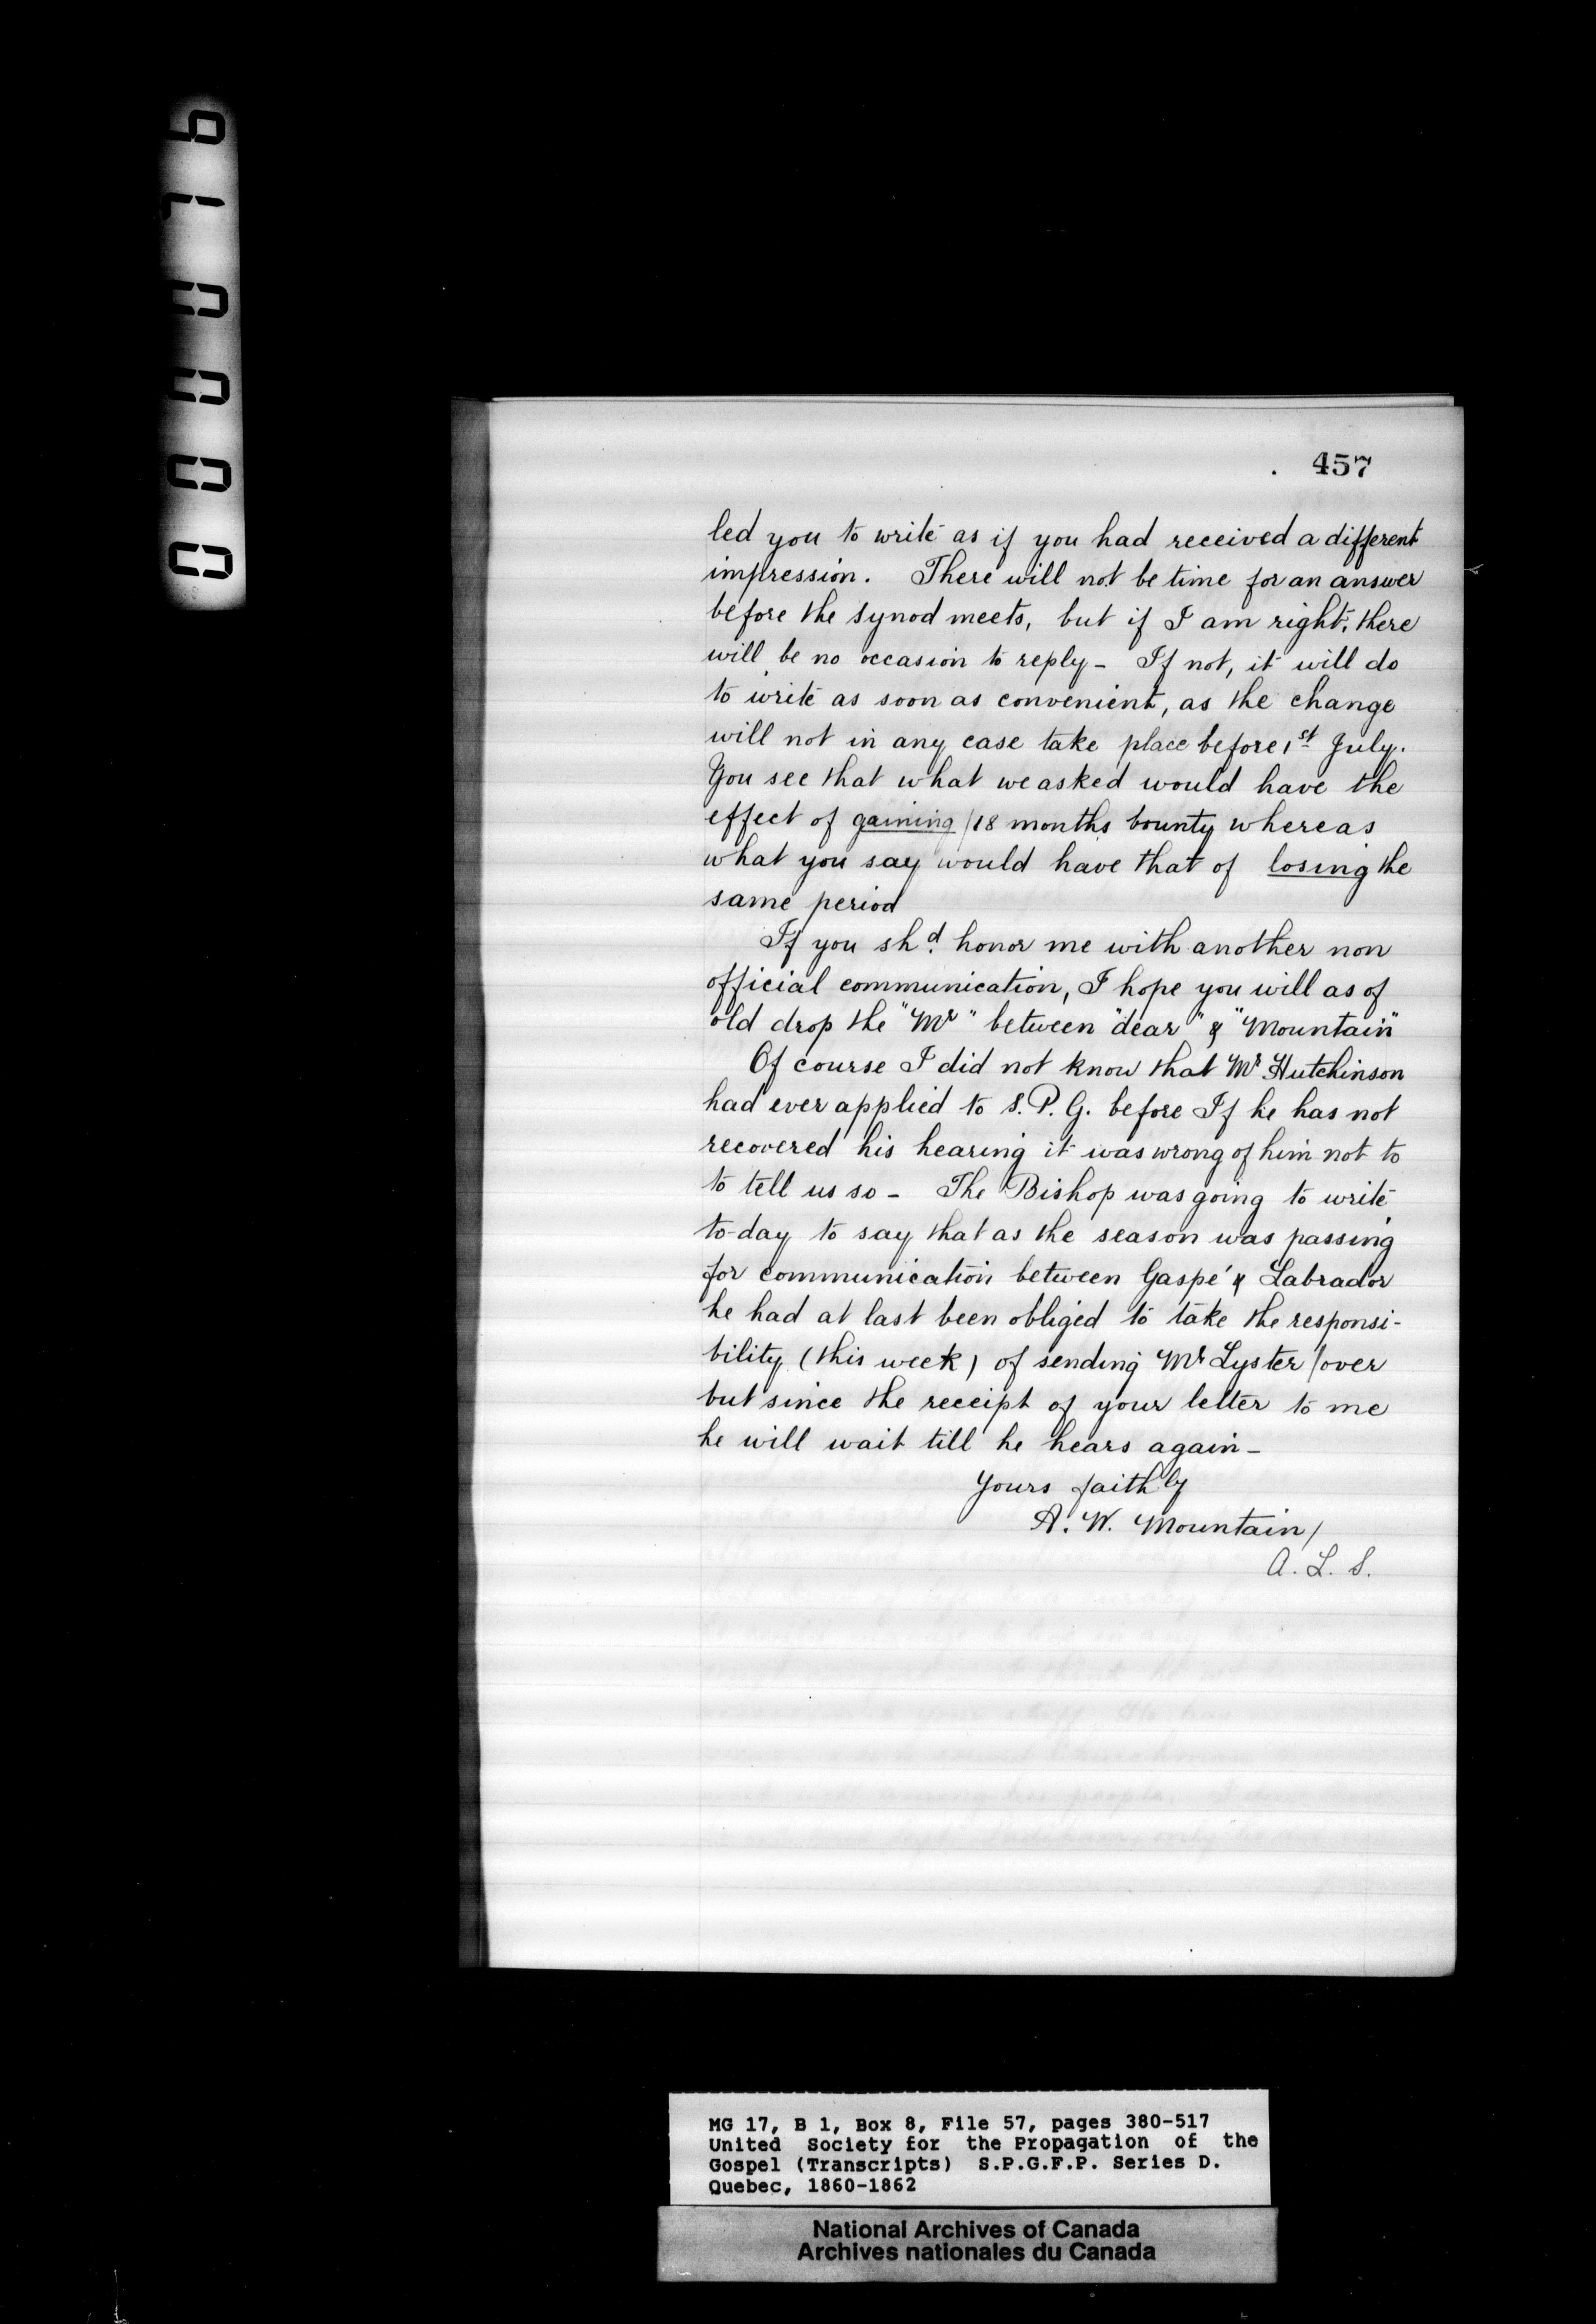 000016
457
led you to write as if you had received a different
impression. There will not be time for an answer
before the synod meets, but if I am right, there
will be no occasion to reply - If not, it will do
to write as soon as convenient, as the change
will not in any case take place before 1st July.
You see that what we asked would have the
effect of gaining / 18 months bounty whereas
what you say would have that of losing the
same period
If you shd. honor me with another non
official communication, I hope you will as of
old drop the "Mr" between "dear" & "Mountain"
Of course I did not know that Mr Hutchinson
had ever applied to S. P. G. before If he has not
recovered his hearing it was wrong of him not to
to tell us so - The Bishop was going to write
to-day to say that as the season was passing
for communication between Gaspé & Labrador
he had at last been obliged to take the responsi-
bility (this week) of sending Mr Lyster / over
but since the receipt of your letter to me
he will wait till he hears again -
Yours faithly
A. W. Mountain /
A. L. S.
MG 17, B 1, Box 8, File 57, pages 380-517
United Society for the Propagation of the
Gospel (Transcripts) S.P.G.F.P. Series D.
Quebec, 1860-1862
National Archives of Canada
Archives nationales du Canada